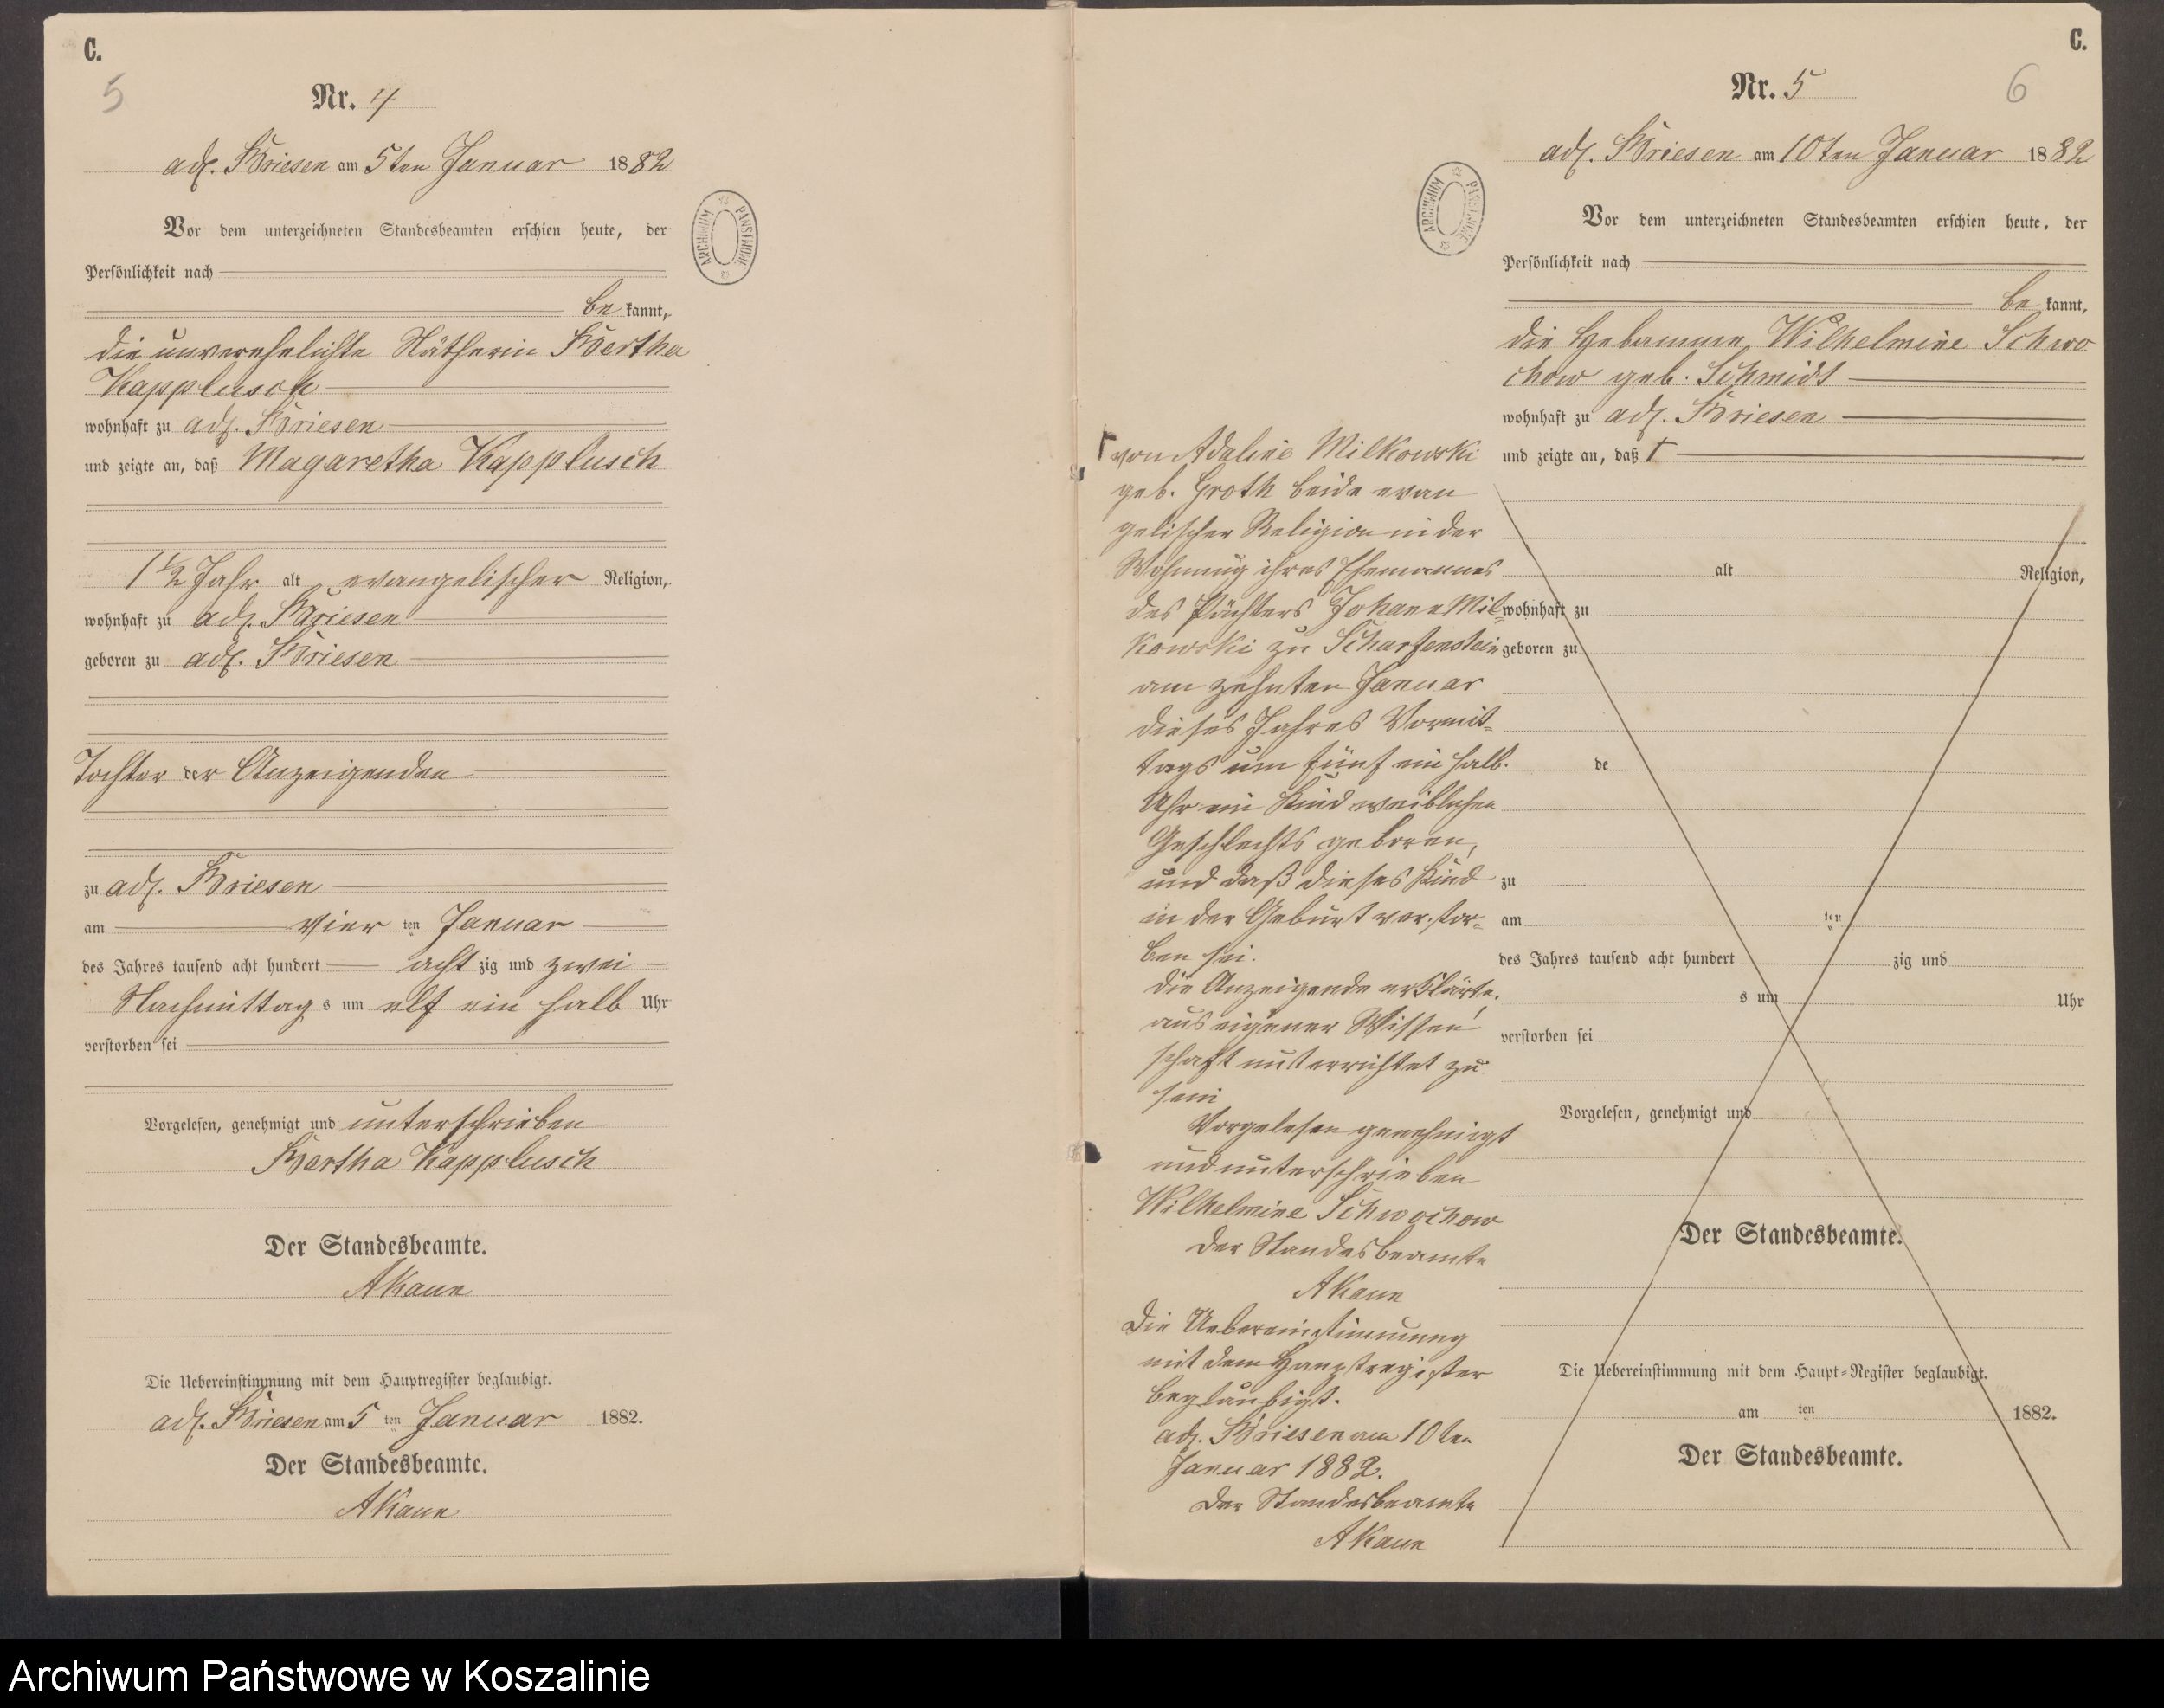 C.
5
Nr. 4
adl. Briesen am 5ten Januar 1882
Vor dem unterzeichneten Standesbeamten erschien heute, der
Persönlichkeit nach
be kannt,
die unverehelichte Nätherin Bertha
Kapplusch
wohnhaft zu adl. Briesen
und zeigte an, daß Magaretha Kapplusch
1 1/2 Jahr alt evangelischer Religion,
wohnhaft zu adl. Briesen
geboren zu adl. Briesen
Tochter der Anzeigenden
zu adl. Briesen
am vier ten Januar
des Jahres tausend acht hundert acht zig und zwei
Nachmittag s um elf ein halb Uhr
verstorben sei
Vorgelesen, genehmigt und unterschrieben
Bertha Kapplusch
Der Standesbeamte.
AKaun
Die Uebereinstimmung mit dem Hauptregister beglaubigt.
adl. Briesen am 5 ten Januar 1882.
Der Standesbeamte.
AKaun
ARCHIWUM PAŃSTWOWE
C.
6
Nr. 5
adl. Briesen am 10ten Januar 1882
Vor dem unterzeichneten Standesbeamten erschien heute, der
Persönlichkeit nach
be kannt,
die Hebamme Wilhelmine Schwo
chow geb. Schmidt
wohnhaft zu adl. Briesen
und zeigte an, daß Γ
alt Religion,
wohnhaft zu
geboren zu
de
zu
am ten
des Jahres tausend acht hundert zig und
s um Uhr
verstorben sei
Vorgelesen, genehmigt und
Der Standesbeamte.
Die Uebereinstimmung mit dem Haupt-Register beglaubigt.
am ten 1882.
Der Standesbeamte.
ARCHIWUM PAŃSTWOWE
Γ von Adaline Milkowski
geb. Groth beide evan
gelischer Religion in der
Wohnung ihres Ehemannes
des Pächters Johann Mil=
kowski zu Scharfenstein
am zehnten Januar
dieses Jahres Vormit=
tags um fünf ein halb
Uhr ein Kind weiblichen
Geschlechts geboren,
und daß dieses Kind
in der Geburt verstor=
ben sei.
die Anzeigende erklärte,
aus eigener Wissen
schaft unterrichtet zu
sein
Vorgelesen genehmigt
und unterschrieben
Wilhelmine Schwochow
der Standesbeamte
AKaun
Die Uebereinstimmung
mit dem Hauptregister
beglaubigt.
adl. Briesen am 10ten
Januar 1882.
Der Standesbeamte
AKaun
Archiwum Państwowe w Koszalinie